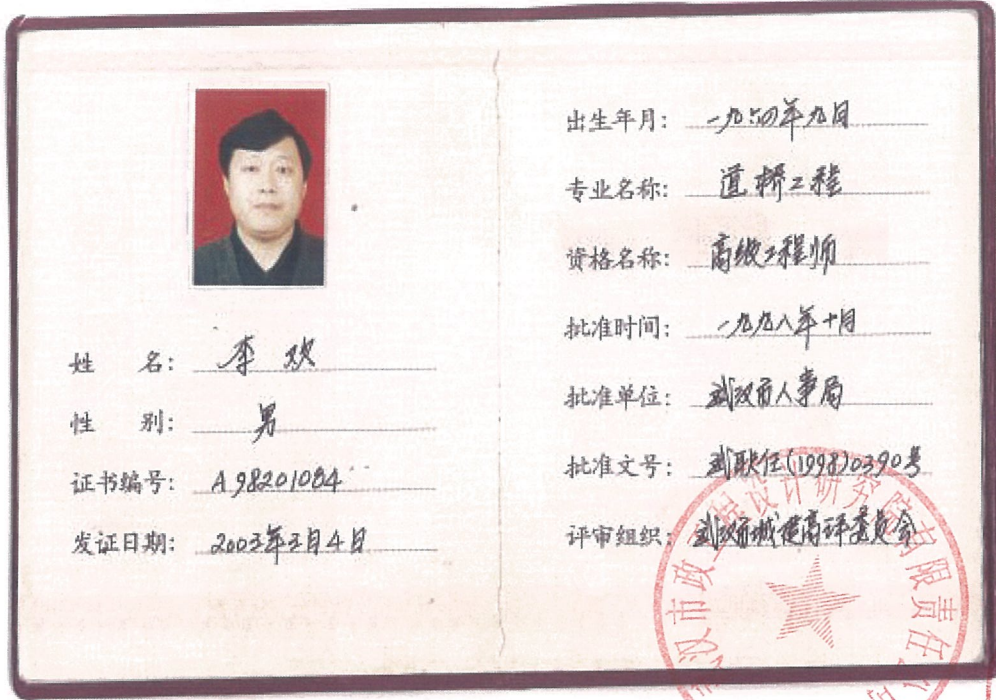 姓 名: 李欢
性 别: 男
证书编号: A98201084
发证日期: 2003年3月4日
出生年月: 一九六四年九月
专业名称: 道桥工程
资格名称: 高级工程师
批准时间: 一九九八年十月
批准单位: 武汉市人事局
批准文号: 武职任(1998)0390号
评审组织: 武汉市城建高评委员会
汉市政工程设计研究院有限责任